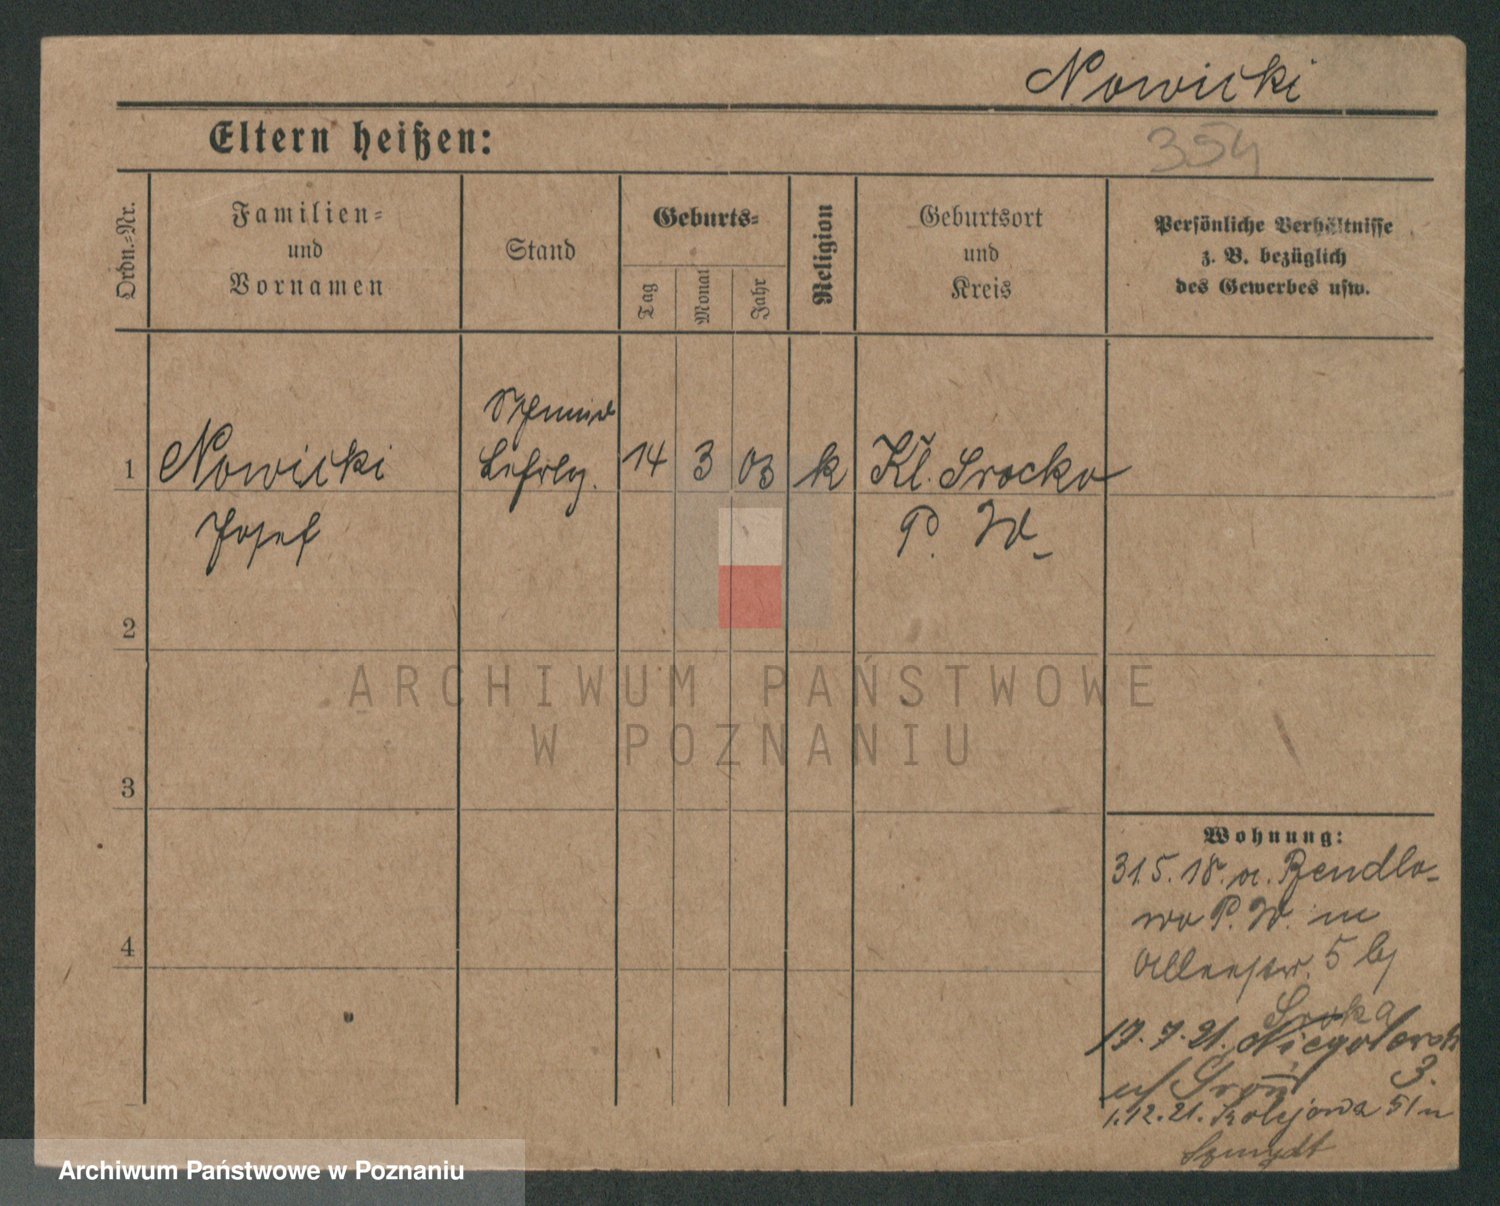 Nowicki
Eltern heißen:
354
Ordn.=Nr.
Familien=
und
Vornamen
Stand
Geburts=
Tag
Monat
Jahr
Religion
Geburtsort
und
Kreis
Persönliche Verhältnisse
z. B. bezüglich
des Gewerbes usw.
Schmied
1 Nowicki Lehrlg. 14 3 03 k Kl. Srocko
Josef P. W.
2
3
4
Wohnung:
31.5.18. a. Bendle-
wo P. W. in
5 b/
Sroka
17.7.21.
3.
1.12.21. Kolejowa 51 u
Szmydt
ARCHIWUM PAŃSTWOWE
W POZNANIU
Archiwum Państwowe w Poznaniu